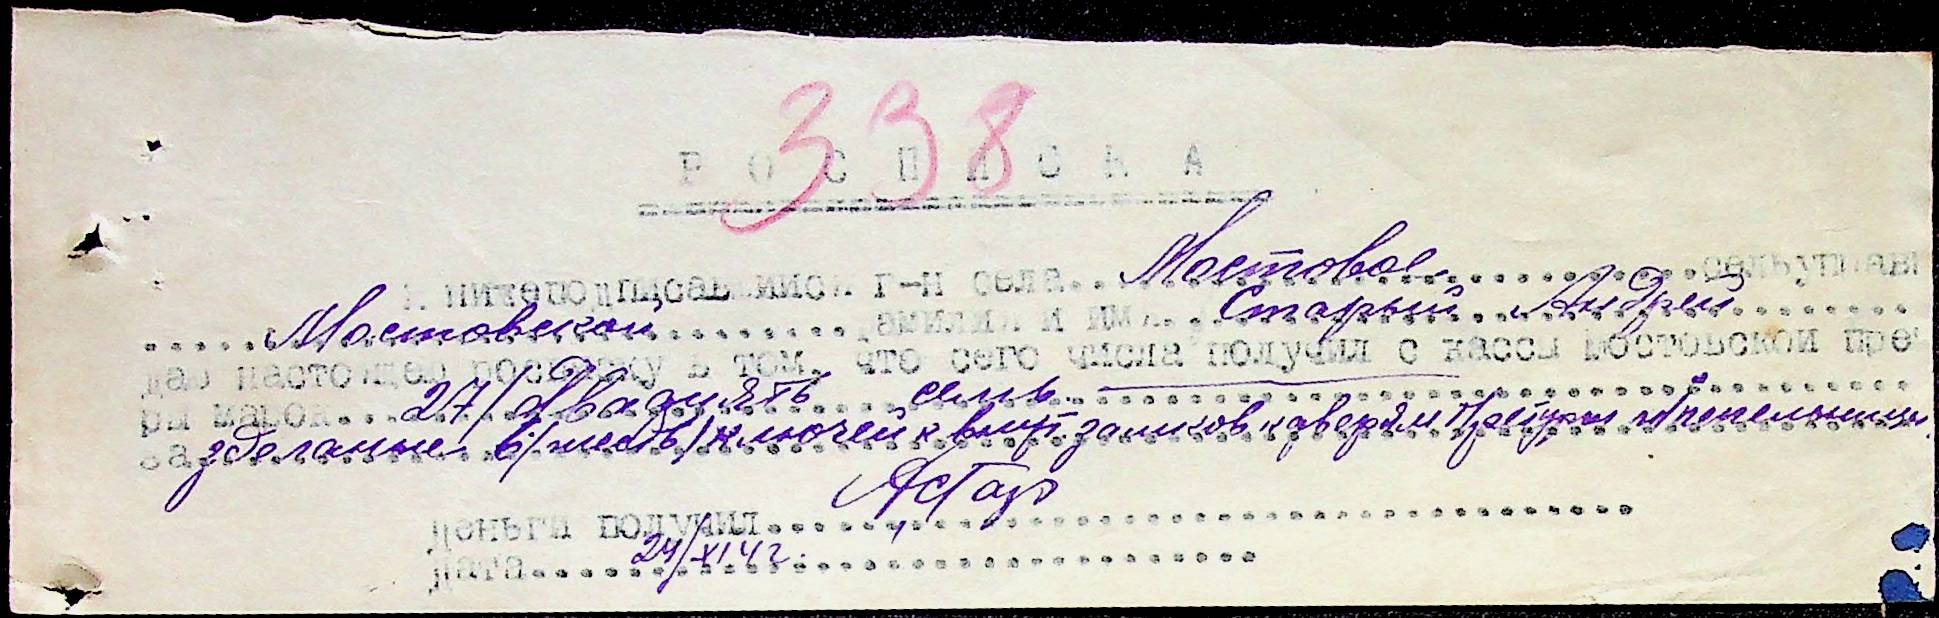 338
Р О С П И С К А
нижеподписавшийся г-н села.. Мостовое
Мостовской фамилия и имя.. Старый Андрей
дав настоящею росписку в том, что сего числа получил с кассы Ростовской пре
ры марок... 27/Двадцять семь
за зделаные 6/шесть/ ключей к замков к дверям Претуры и пепельницы
Деньги получил АСтар
Дата 24/XI